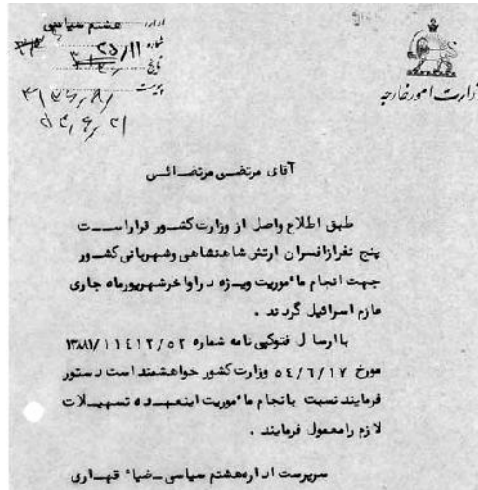 وزارت امور خارجه
اداره هشتم سیاسی
شماره ۲۵/۱۱
تاریخ
پیوست
آقای مرتضی مرتضائی
طبق اطلاع واصل از وزارت کشور قرار است
پنج نفر از افسران ارتش شاهنشاهی و شهربانی کشور
جهت انجام مأموریت ویژه در اواخر شهریور ماه جاری
عازم اسرائیل گردند .
با ارسال فتوکپی نامه شماره ۵۲/۱۱۴۱۲/۱۳۸۸۱
مورخ ۵۴/۶/۱۷ وزارت کشور خواهشمند است دستور
فرمایند نسبت بانجام مأموریت اینعده تسهیلات
لازم را معمول فرمایند .
سرپرست اداره هشتم سیاسی - ضیاء قهاری